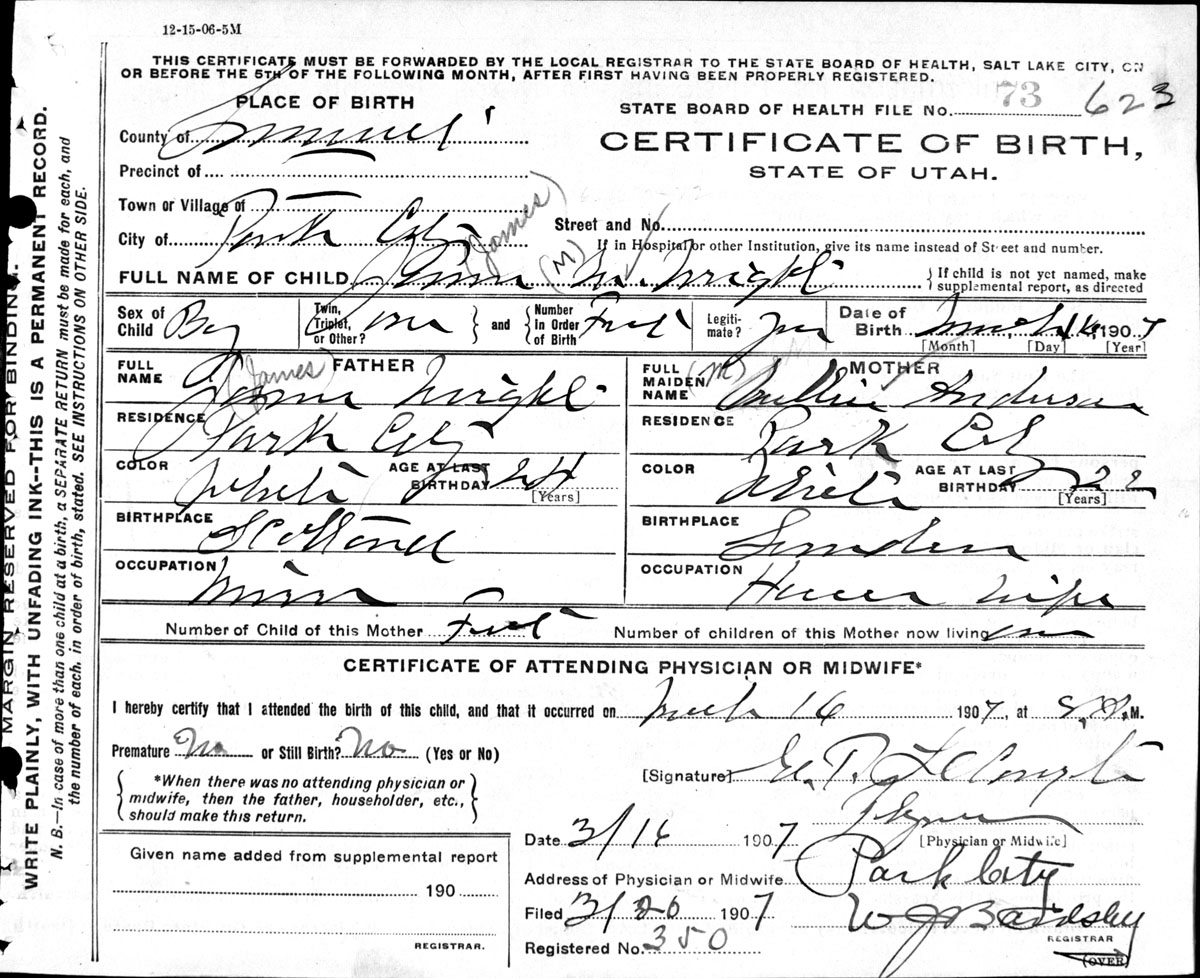 12-15-06-5M
THIS CERTIFICATE MUST BE FORWARDED BY THE LOCAL REGISTRAR TO THE STATE BOARD OF HEALTH, SALT LAKE CITY, ON
OR BEFORE THE 5TH OF THE FOLLOWING MONTH, AFTER FIRST HAVING BEEN PROPERLY REGISTERED.
MARGIN RESERVED FOR BINDING.
WRITE PLAINLY, WITH UNFADING INK--THIS IS A PERMANENT RECORD.
N. B.—In case of more than one child at a birth, a SEPARATE RETURN must be made for each, and
the number of each, in order of birth, stated. SEE INSTRUCTIONS ON OTHER SIDE.
PLACE OF BIRTH
STATE BOARD OF HEALTH FILE No. 73 623
County of Summit
CERTIFICATE OF BIRTH,
STATE OF UTAH.
Precinct of
Town or Village of
Street and No.
City of Park City
If in Hospital or other Institution, give its name instead of Street and number.
(James) (M)
FULL NAME OF CHILD M. Wright
If child is not yet named, make
supplemental report, as directed
Sex of Child Boy
Twin, Triplet, or Other? one and Number In Order of Birth First
Legitimate? Yes
Date of Birth March 16, 1907
[Month] [Day] [Year]
FATHER
FULL NAME (James) Wright
RESIDENCE Park City
COLOR White AGE AT LAST BIRTHDAY 24 [Years]
BIRTHPLACE Scotland
OCCUPATION Miner
MOTHER
FULL MAIDEN NAME (M) Anderson
RESIDENCE Park City
COLOR White AGE AT LAST BIRTHDAY 22 [Years]
BIRTHPLACE Sweden
OCCUPATION House Wife
Number of Child of this Mother First Number of children of this Mother now living one
CERTIFICATE OF ATTENDING PHYSICIAN OR MIDWIFE*
I hereby certify that I attended the birth of this child, and that it occurred on March 16 1907, at M.
Premature No or Still Birth? No (Yes or No)
*When there was no attending physician or
midwife, then the father, householder, etc.,
should make this return.
[Signature]
[Physician or Midwife]
Date 3/16 1907
Address of Physician or Midwife Park City
Filed 3/20 1907 W J Bardsley
REGISTRAR
Registered No. 350
(OVER)
Given name added from supplemental report
190
REGISTRAR.